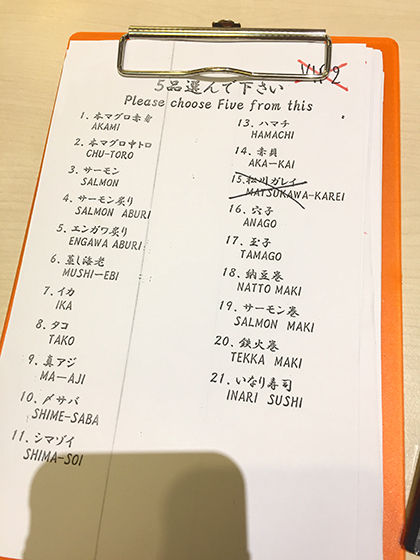 VIP 2
5品選んで下さい
Please choose Five from this
1. 本マグロ赤身
AKAMI
2. 本マグロ中トロ
CHU-TORO
3. サーモン
SALMON
4. サーモン炙り
SALMON ABURI
5. エンガワ炙り
ENGAWA ABURI
6. 蒸し海老
MUSHI-EBI
7. イカ
IKA
8. タコ
TAKO
9. 真アジ
MA-AJI
10. 〆サバ
SHIME-SABA
11. シマゾイ
SHIMA-SOI
13. ハマチ
HAMACHI
14. 赤貝
AKA-KAI
15. 松川ガレイ
MATSUKAWA-KAREI
16. 穴子
ANAGO
17. 玉子
TAMAGO
18. 納豆巻
NATTO MAKI
19. サーモン巻
SALMON MAKI
20. 鉄火巻
TEKKA MAKI
21. いなり寿司
INARI SUSHI